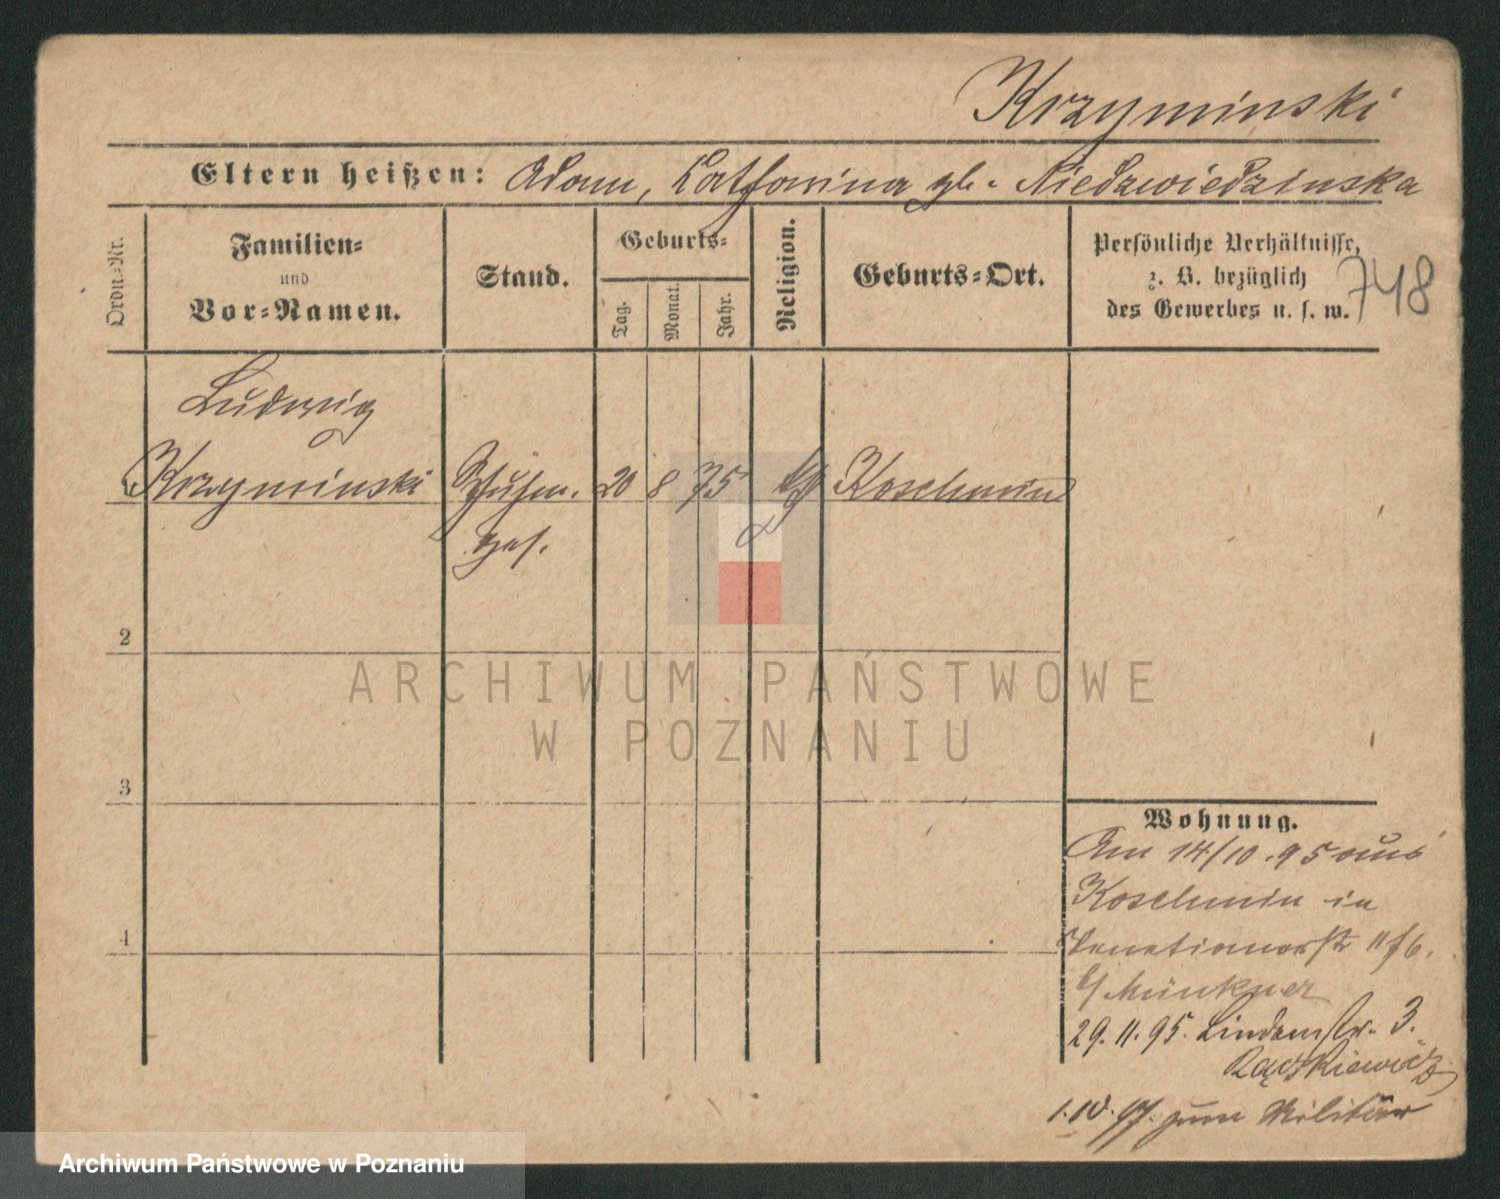 Krzyminski
Eltern heißen: Adam, Catharina gb. Niedzwiedzinska
Ordn.-Nr.
Familien- und Vor-Namen.
Stand.
Geburts-
Tag.
Monat.
Jahr.
Religion.
Geburts-Ort.
Persönliche Verhältnisse,
z. B. bezüglich
des Gewerbes u. s. w.
748
Ludwig
Krzyminski
Schuhm.
ges.
20
8
75
kth
Koschmin
2
3
4
Wohnung.
Am 14/10.95 aus
Koschmin in
Venetianerstr
b/ Münkner
29.11.95. Lindenstr. 3.
Rączkiewicz
1.10.97. zum Militär
ARCHIWUM PAŃSTWOWE
W POZNANIU
Archiwum Państwowe w Poznaniu